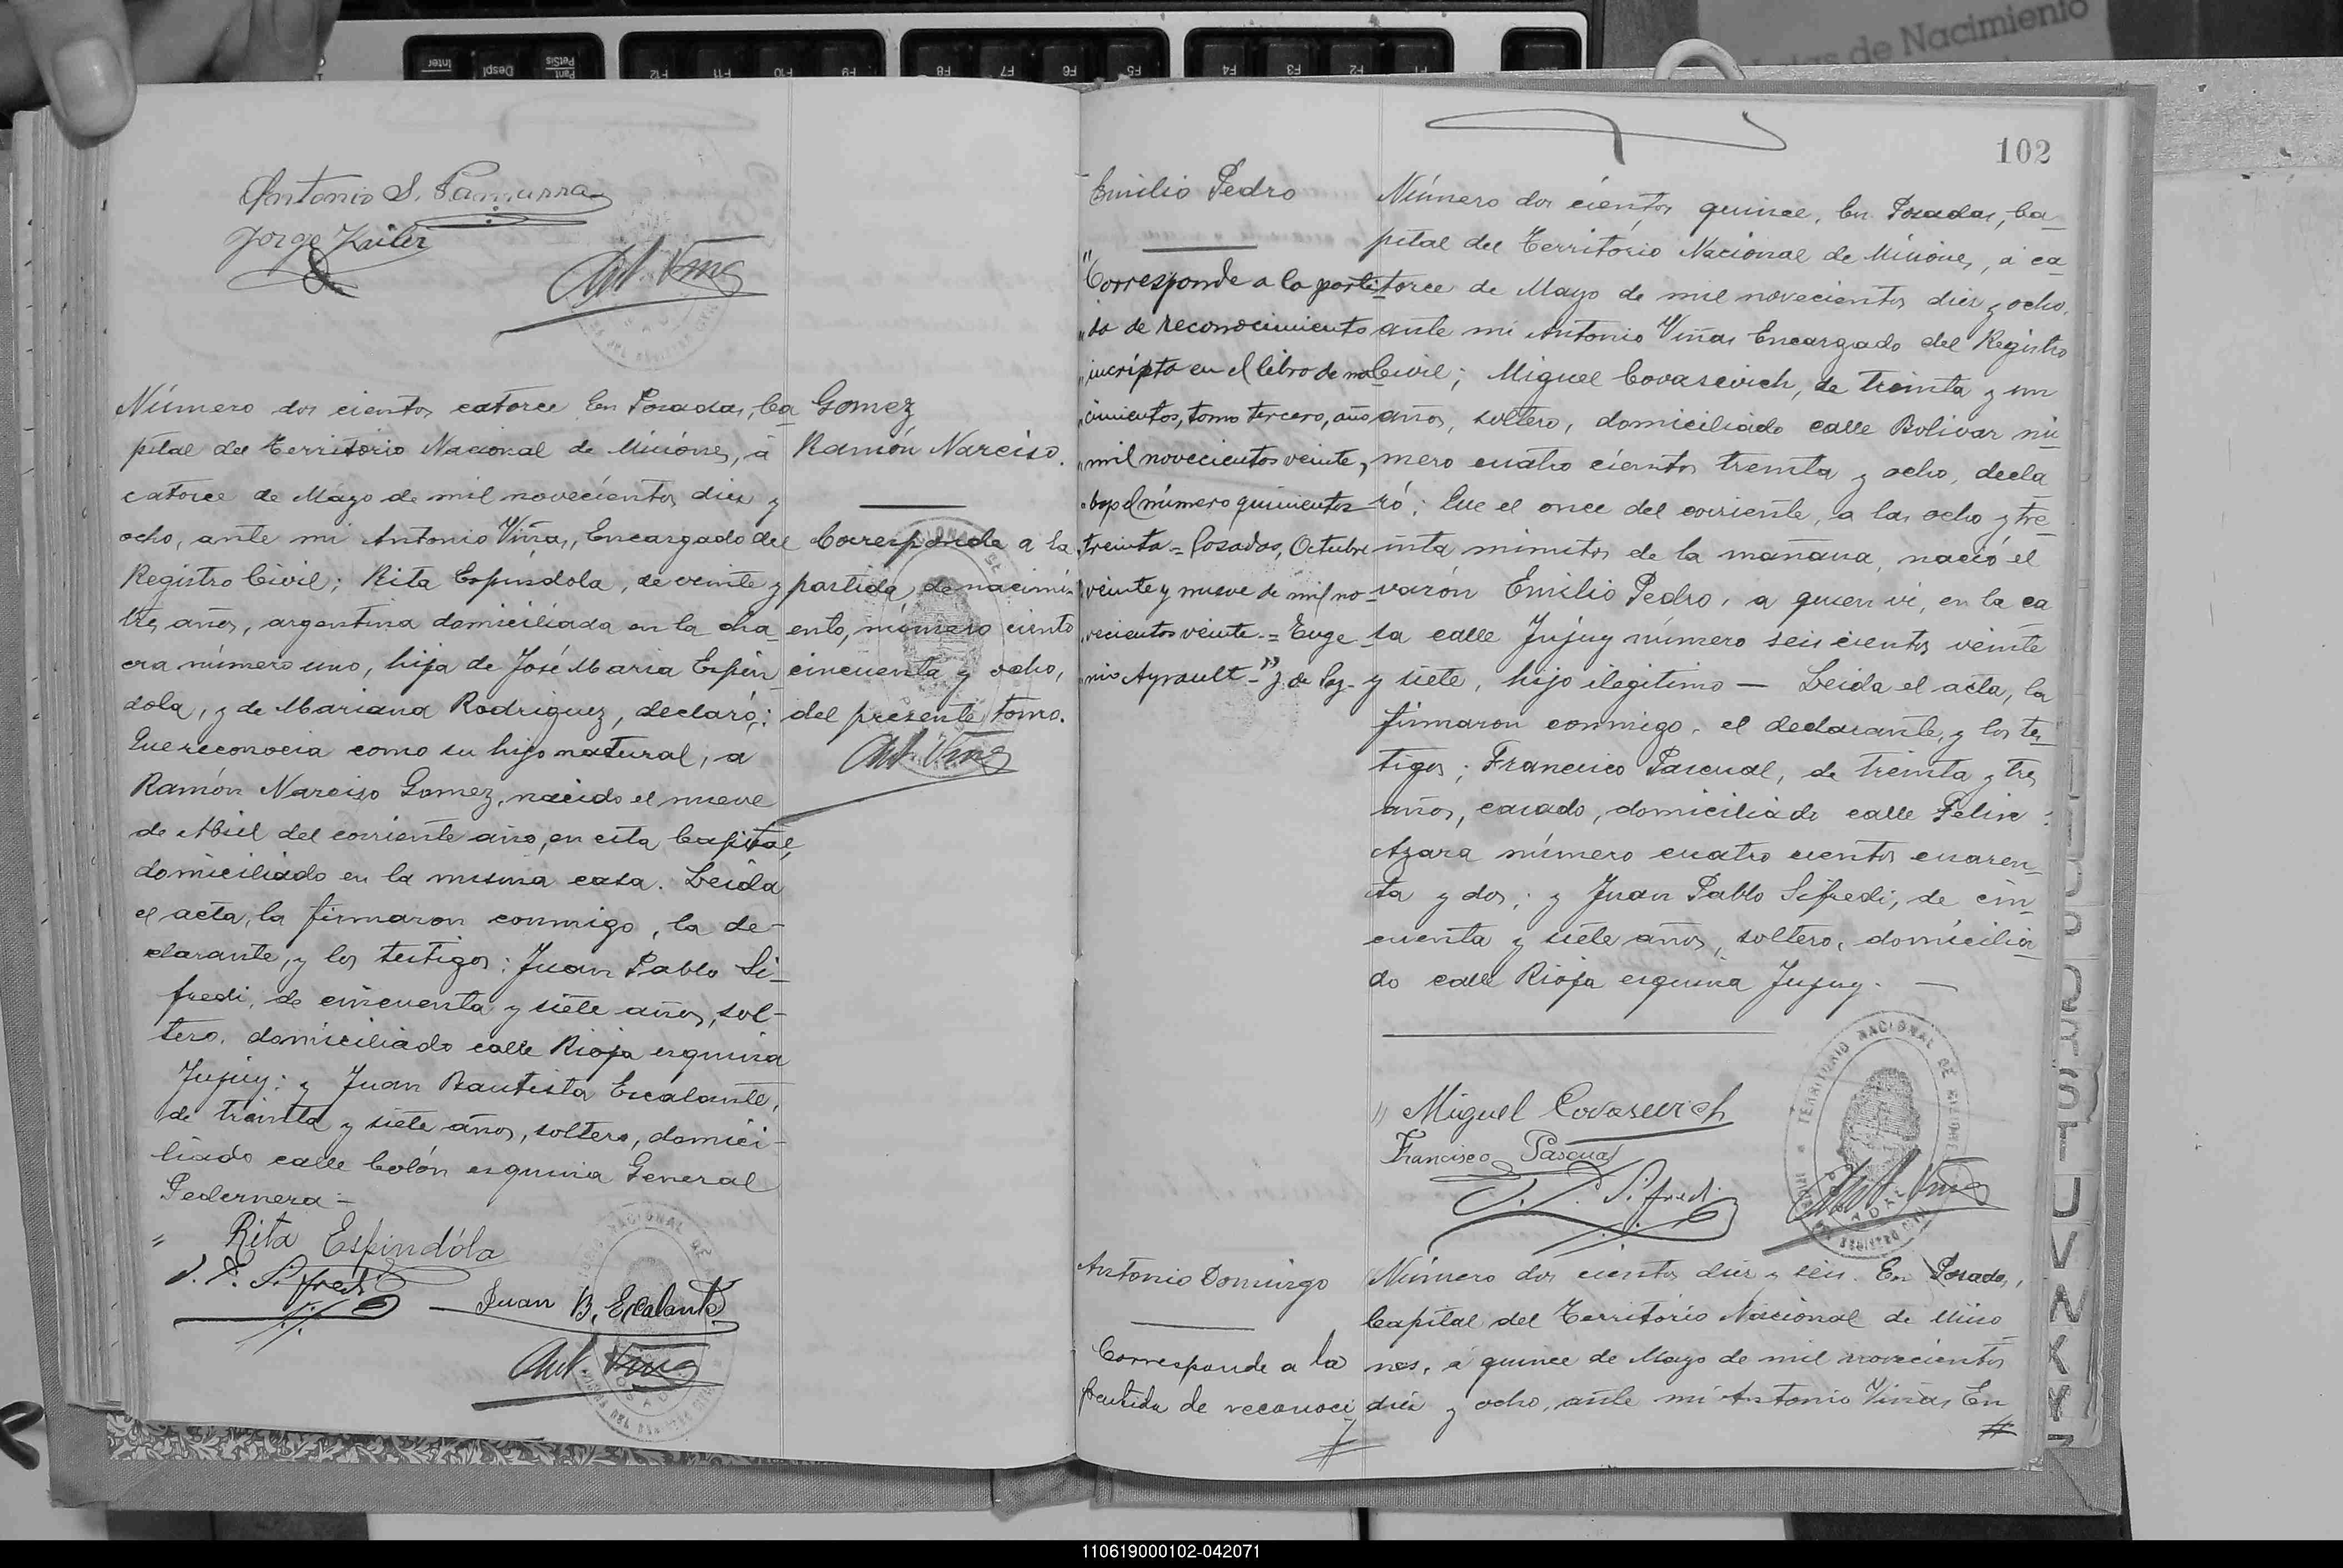 Inter
Despl
Pant
PetSis
F12
F11
F10
F9
F8
F7
F6
F5
F4
F3
F2
F1
de Nacimiento
Antonio S.
Jorge
Ant. Viñas
Número dos cientos catorce En Posadas, Ca
pital del Territorio Nacional de Misiones, á
catorce de Mayo de mil novecientos diez y
ocho, ante mi Antonio Viñas, Encargado del
Registro Civil; Rita Espindola, de veinte y
tres años, argentina domiciliada en la cha
cra número uno, hija de José Maria Espin
dola, y de Mariana Rodriguez, declaró:
Que reconocia como su hijo natural, a
Ramón Narciso Gomez, nacido el nueve
de Abril del corriente año, en esta Capital,
domiciliado en la misma casa. Leida
el acta, la firmaron conmigo, la de-
clarante, y los testigos: Juan Pablo Si-
fredi, de cincuenta y siete años, sol-
tero, domiciliado calle Rioja esquina
Jujuy: y Juan Bautista Escalante,
de treinta y siete años, soltero, domici-
liado calle Colón esquina General
Pedernera -
Rita Espindóla
J. P. Sifredi
Juan B. Escalante
Ant. Viñas
Gomez
Ramón Narciso.
Corresponde a la
partida, de nacimi
ento, número ciento
cincuenta y ocho,
del presente tomo.
Ant. Viñas
102
Emilio Pedro
"Corresponde a la parti-
"da de reconocimiento
"incripta en el libro de na-
"cimientos, tomo tercero, año
"mil novecientos veinte,
"bajo el número quinientos
"treinta = Posadas, Octubre
"veinte y nueve de mil no-
"vecientos veinte. = Euge
"nio Ayrault -" J. de Paz -
Número dos cientos quince, En Posadas, Ca-
pital del Territorio Nacional de Misiones, á ca-
torce de Mayo de mil novecientos diez y ocho,
ante mi Antonio Viñas Encargado del Registro
Civil; Miguel Covasevich, de treinta y un
años, soltero, domiciliado calle Bolivar nú-
mero cuatro cientos treinta y ocho, decla
ró: Que el once del corriente, a las ocho y tre-
inta minutos de la mañana, nació el
varón Emilio Pedro, a quien vi, en la ca
sa calle Jujuy número seis cientos veinte
y siete, hijo ilegitimo — Leida el acta, la
firmaron conmigo, el declarante, y los tes-
tigos; Francisco Pascual, de treinta y tres
años, casado, domiciliado calle Felix
Azara número cuatro cientos cuaren-
ta y dos; y Juan Pablo Sifredi, de cin-
cuenta y siete años, soltero, domicilia-
do calle Rioja esquina Jujuy. —
TERRITORIO NACIONAL DE MISIONES
" Miguel Covasevich
Francisco Pascual
J. P. Sifredi
Ant. Viñas
Antonio Domingo
Corresponde a la
partida de reconoci
Número dos cientos diez y seis. En Posadas,
Capital del Territorio Nacional de Misio
nes, á quince de Mayo de mil novecientos
diez y ocho, ante mi Antonio Viñas En
O
P
Q
R
S
T
U
V
W
K
Y
Z
110619000102-042071